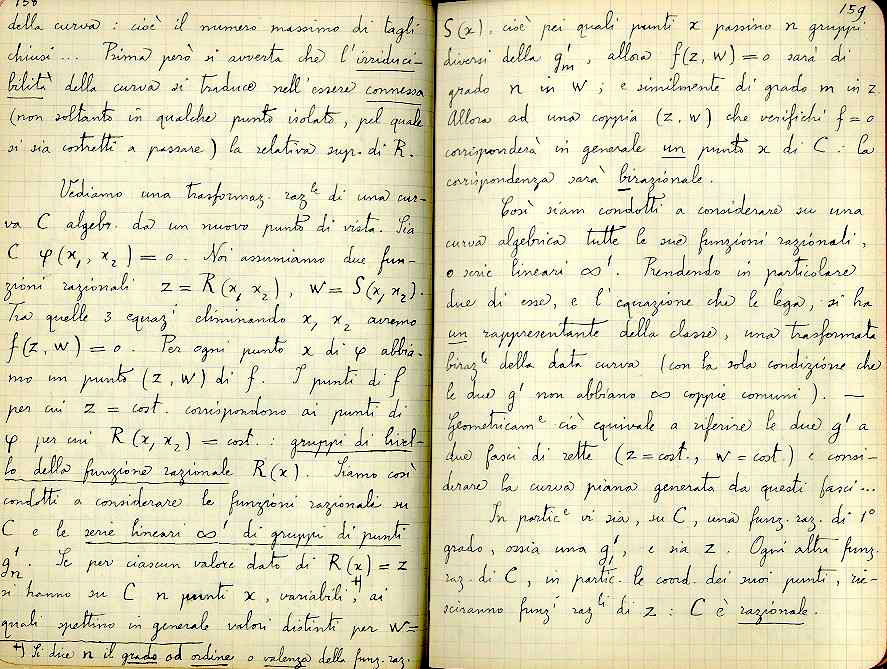 158
della curva : cioè il numero massimo di tagli
chiusi ... Prima però si avverta che l'irriduci-
bilità della curva si traduce nell'essere connessa
(non soltanto in qualche punto isolato, pel quale
si sia costretti a passare) la relativa sup. di R.
Vediamo una trasformaz. raz.le di una cur-
va C algebr. da un nuovo punto di vista. Sia
C φ(x₁, x₂) = 0. Noi assumiamo due fun-
zioni razionali z = R(x₁ x₂), w = S(x₁ x₂).
Tra quelle 3 equazi eliminando x₁ x₂ avremo
f(z, w) = 0. Per ogni punto x di φ abbia-
mo un punto (z, w) di f. I punti di f
per cui z = cost. corrispondono ai punti di
φ per cui R(x₁ x₂) = cost. : gruppi di livel-
lo della funzione razionale R(x). Siamo così
condotti a considerare le funzioni razionali su
C e le serie lineari ∞¹ di gruppi di punti
g¹ₙ. Se per ciascun valore dato di R(x) = z
si hanno su C n punti x, variabili +), ai
quali spettino in generale valori distinti per w=
+) Si dice n il grado od ordine o valenza della funz. raz.
159
S(x), cioè pei quali punti x passino n gruppi
diversi della g¹ₘ, allora f(z, w) = 0 sarà di
grado n in w ; e similmente di grado m in z.
Allora ad una coppia (z, w) che verifichi f = 0
corrisponderà in generale un punto x di C : la
corrispondenza sarà birazionale.
Così siam condotti a considerare su una
curva algebrica tutte le sue funzioni razionali,
o serie lineari ∞¹. Prendendo in particolare
due di esse, e l'equazione che le lega, si ha
un rappresentante della classe, una trasformata
biraz.le della data curva (con la sola condizione che
le due g¹ non abbiano ∞ coppie comuni). —
Geometricam.e ciò equivale a riferire le due g¹ a
due fasci di rette (z = cost., w = cost.) e consi-
derare la curva piana generata da questi fasci ...
In partic.e vi sia, su C, una funz. raz. di 1°
grado, ossia una g¹₁, e sia z. Ogni altra funz.
raz. di C, in partic. le coord. dei suoi punti, rie-
sciranno funzi razli di z : C è razionale.